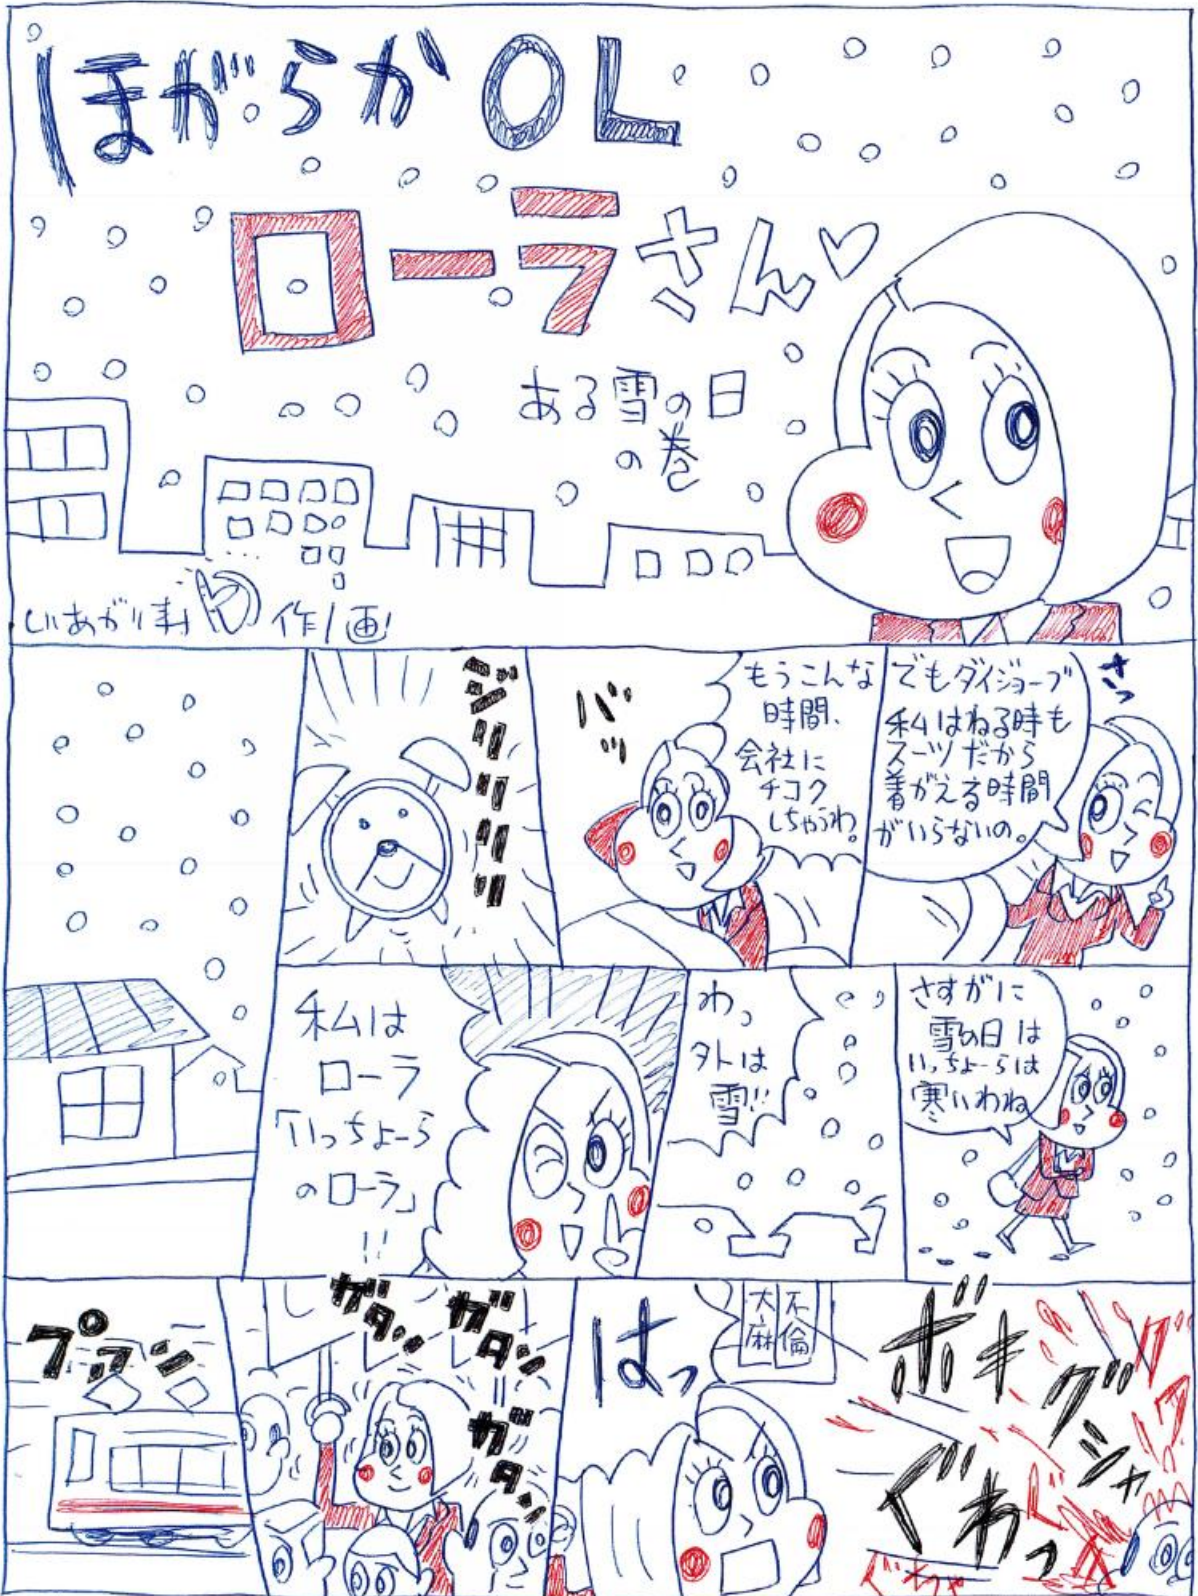 ほがらかOL
ローラさん♡
ある雪の日
の巻
しりあがり寿 作/画
ジリリリリ
バッ
もうこんな
時間、
会社に
チコク
しちゃうわ。
さっ
でもダイジョーブ
私はねる時も
スーツだから
着がえる時間
がいらないの。
私は
ローラ
「いっちょーら
のローラ」
!!
わっ
外は
雪!!
さすがに
雪の日は
いっちょーらは
寒いわね
プァン
ガタン
ガタン
ガタン
はっ
不倫
大麻
ボキ
グシャ
ぐわっ